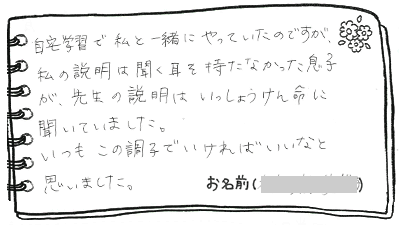 自宅学習で私と一緒にやっていたのですが、
私の説明は聞く耳を持たなかった息子
が、先生の説明はいっしょうけん命に
聞いていました。
いつもこの調子でいければいいなと
思いました。
お名前( )